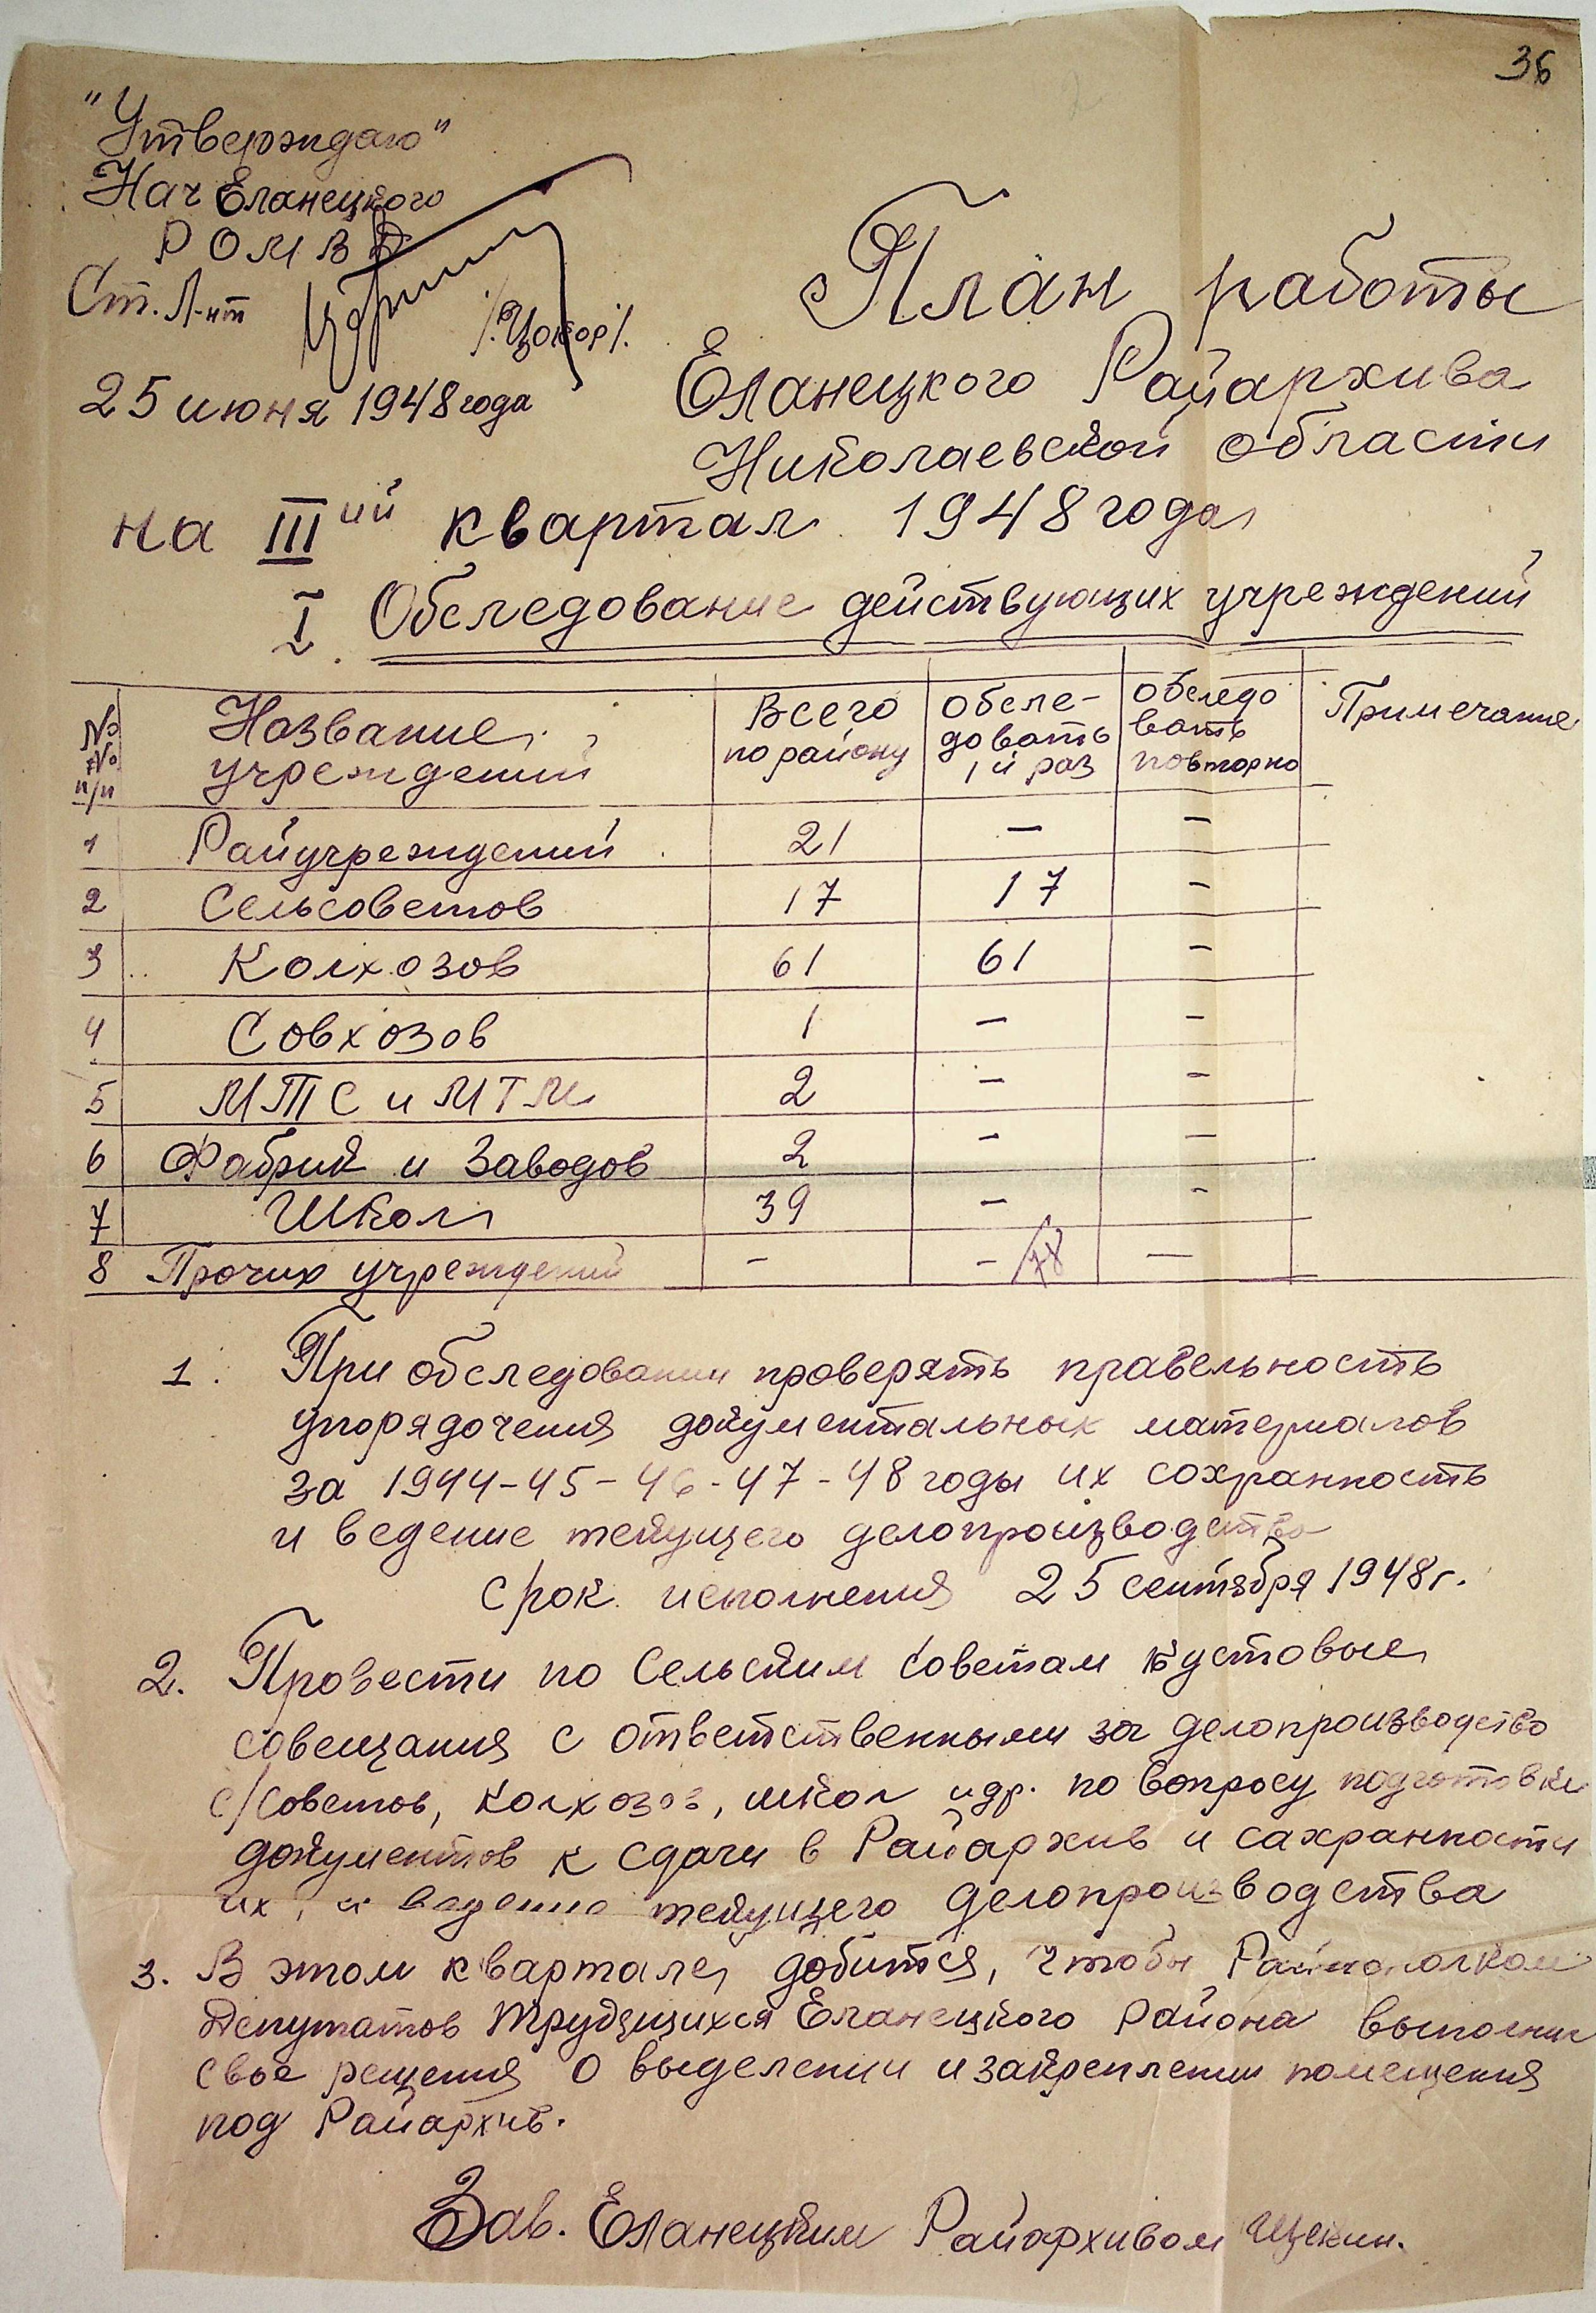 36
"Утверждаю"
Нач Еланецкого
РОМВД
Ст. Л-нт /Цокор/.
25 июня 1948 года
План работы
Еланецкого Райархива
Николаевской области
на III ий квартал 1948 года
I. Обследование действующих учреждений
№ № п/п Название учреждений Всего по району Обследовать 1й раз Обследовать повторно Примечание
1 Райучреждений 21 — —
2 Сельсоветов 17 17 —
3 Колхозов 61 61 —
4 Совхозов 1 — —
5 МТС и МТМ 2 — —
6 Фабрик и Заводов 2 — —
7 Школ 39 — —
8 Прочих учреждений — — 78 —
1. При обследовании проверять правельность
упорядочения документальных материалов
за 1944-45-46-47-48 годы их сохранность
и ведение текущего делопроизводства
Срок исполнения 25 сентября 1948 г.
2. Провести по Сельским Советам кустовые
совещания с ответственными за делопроизводство
с/Советов, колхозов, школ и др. по вопросу подготовки
документов к сдачи в Райархив и сахранности
их, и ведению текущего делопроизводства
3. В этом квартале, добится, чтобы
Депутатов Трудящихся Еланецкого района выполнил
свое решения о выделении и закреплении помещения
под Райархив.
Зав. Еланецким Райархивом